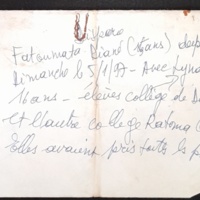 Disparue
Fatoumata Diané (16ans) dep
Dimanche le 5/1/97 - Avec Lyna
16 ans - élèves collège de D
et l'autre college Ratoma (
Elles avaient pris toute les p